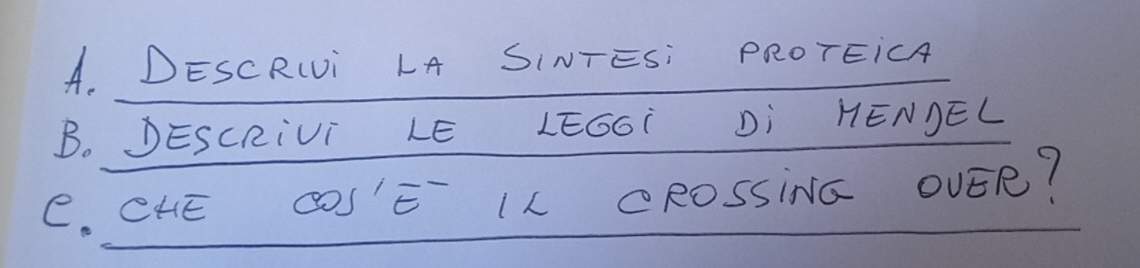 A. DESCRIVI LA SINTESI PROTEICA
B. DESCRIVI LE LEGGI DI MENDEL
C. CHE COS'È IL CROSSING OVER?